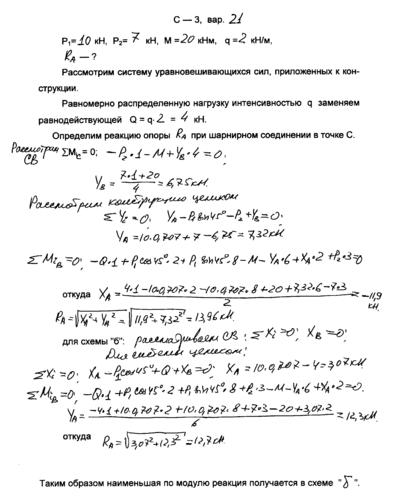 С – 3, вар. 21
P₁=10 кН, P₂= 7 кН, M =20 кНм, q =2 кН/м,
R_A — ?
Рассмотрим систему уравновешивающихся сил, приложенных к кон-
струкции.
Равномерно распределенную нагрузку интенсивностью q заменяем
равнодействующей Q = q· 2 = 4 кН.
Определим реакцию опоры R_A при шарнирном соединении в точке С.
Рассмотрим
СВ ΣM_C = 0; -P₂·1-M+Y_B·4=0;
Y_B = (7·1+20)/4 = 6,75 кН.
Рассмотрим конструкцию целиком
ΣY_i=0; Y_A-P₁sin45°-P₂+Y_B=0;
Y_A=10·0,707+7-6,75=7,32кН
ΣM_iB=0; -Q·1+P₁cos45°·2+P₁sin45°·8-M-Y_A·6+X_A·2+P₂·3=0
откуда X_A = (4·1-10·0,707·2-10·0,707·8+20+7,32·6-7·3)/2 = -11,9 кН
R_A=√(X_A²+Y_A²) = √(11,9²+7,32²) = 13,96 кН.
для схемы "б": рассматриваем СВ: ΣX_i=0; X_B=0;
Для системы целиком:
ΣX_i=0; X_A-P₁cos45°+Q+X_B=0; X_A=10·0,707-4=3,07кН
ΣM_iB=0; -Q·1+P₁cos45°·2+P₁sin45°·8+P₂·3-M-Y_A·6+X_A·2=0.
Y_A= (-4·1+10·0,707·2+10·0,707·8+7·3-20+3,07·2)/6 = 12,3кН.
откуда R_A=√(3,07²+12,3²)=12,7кН.
Таким образом наименьшая по модулю реакция получается в схеме "б".